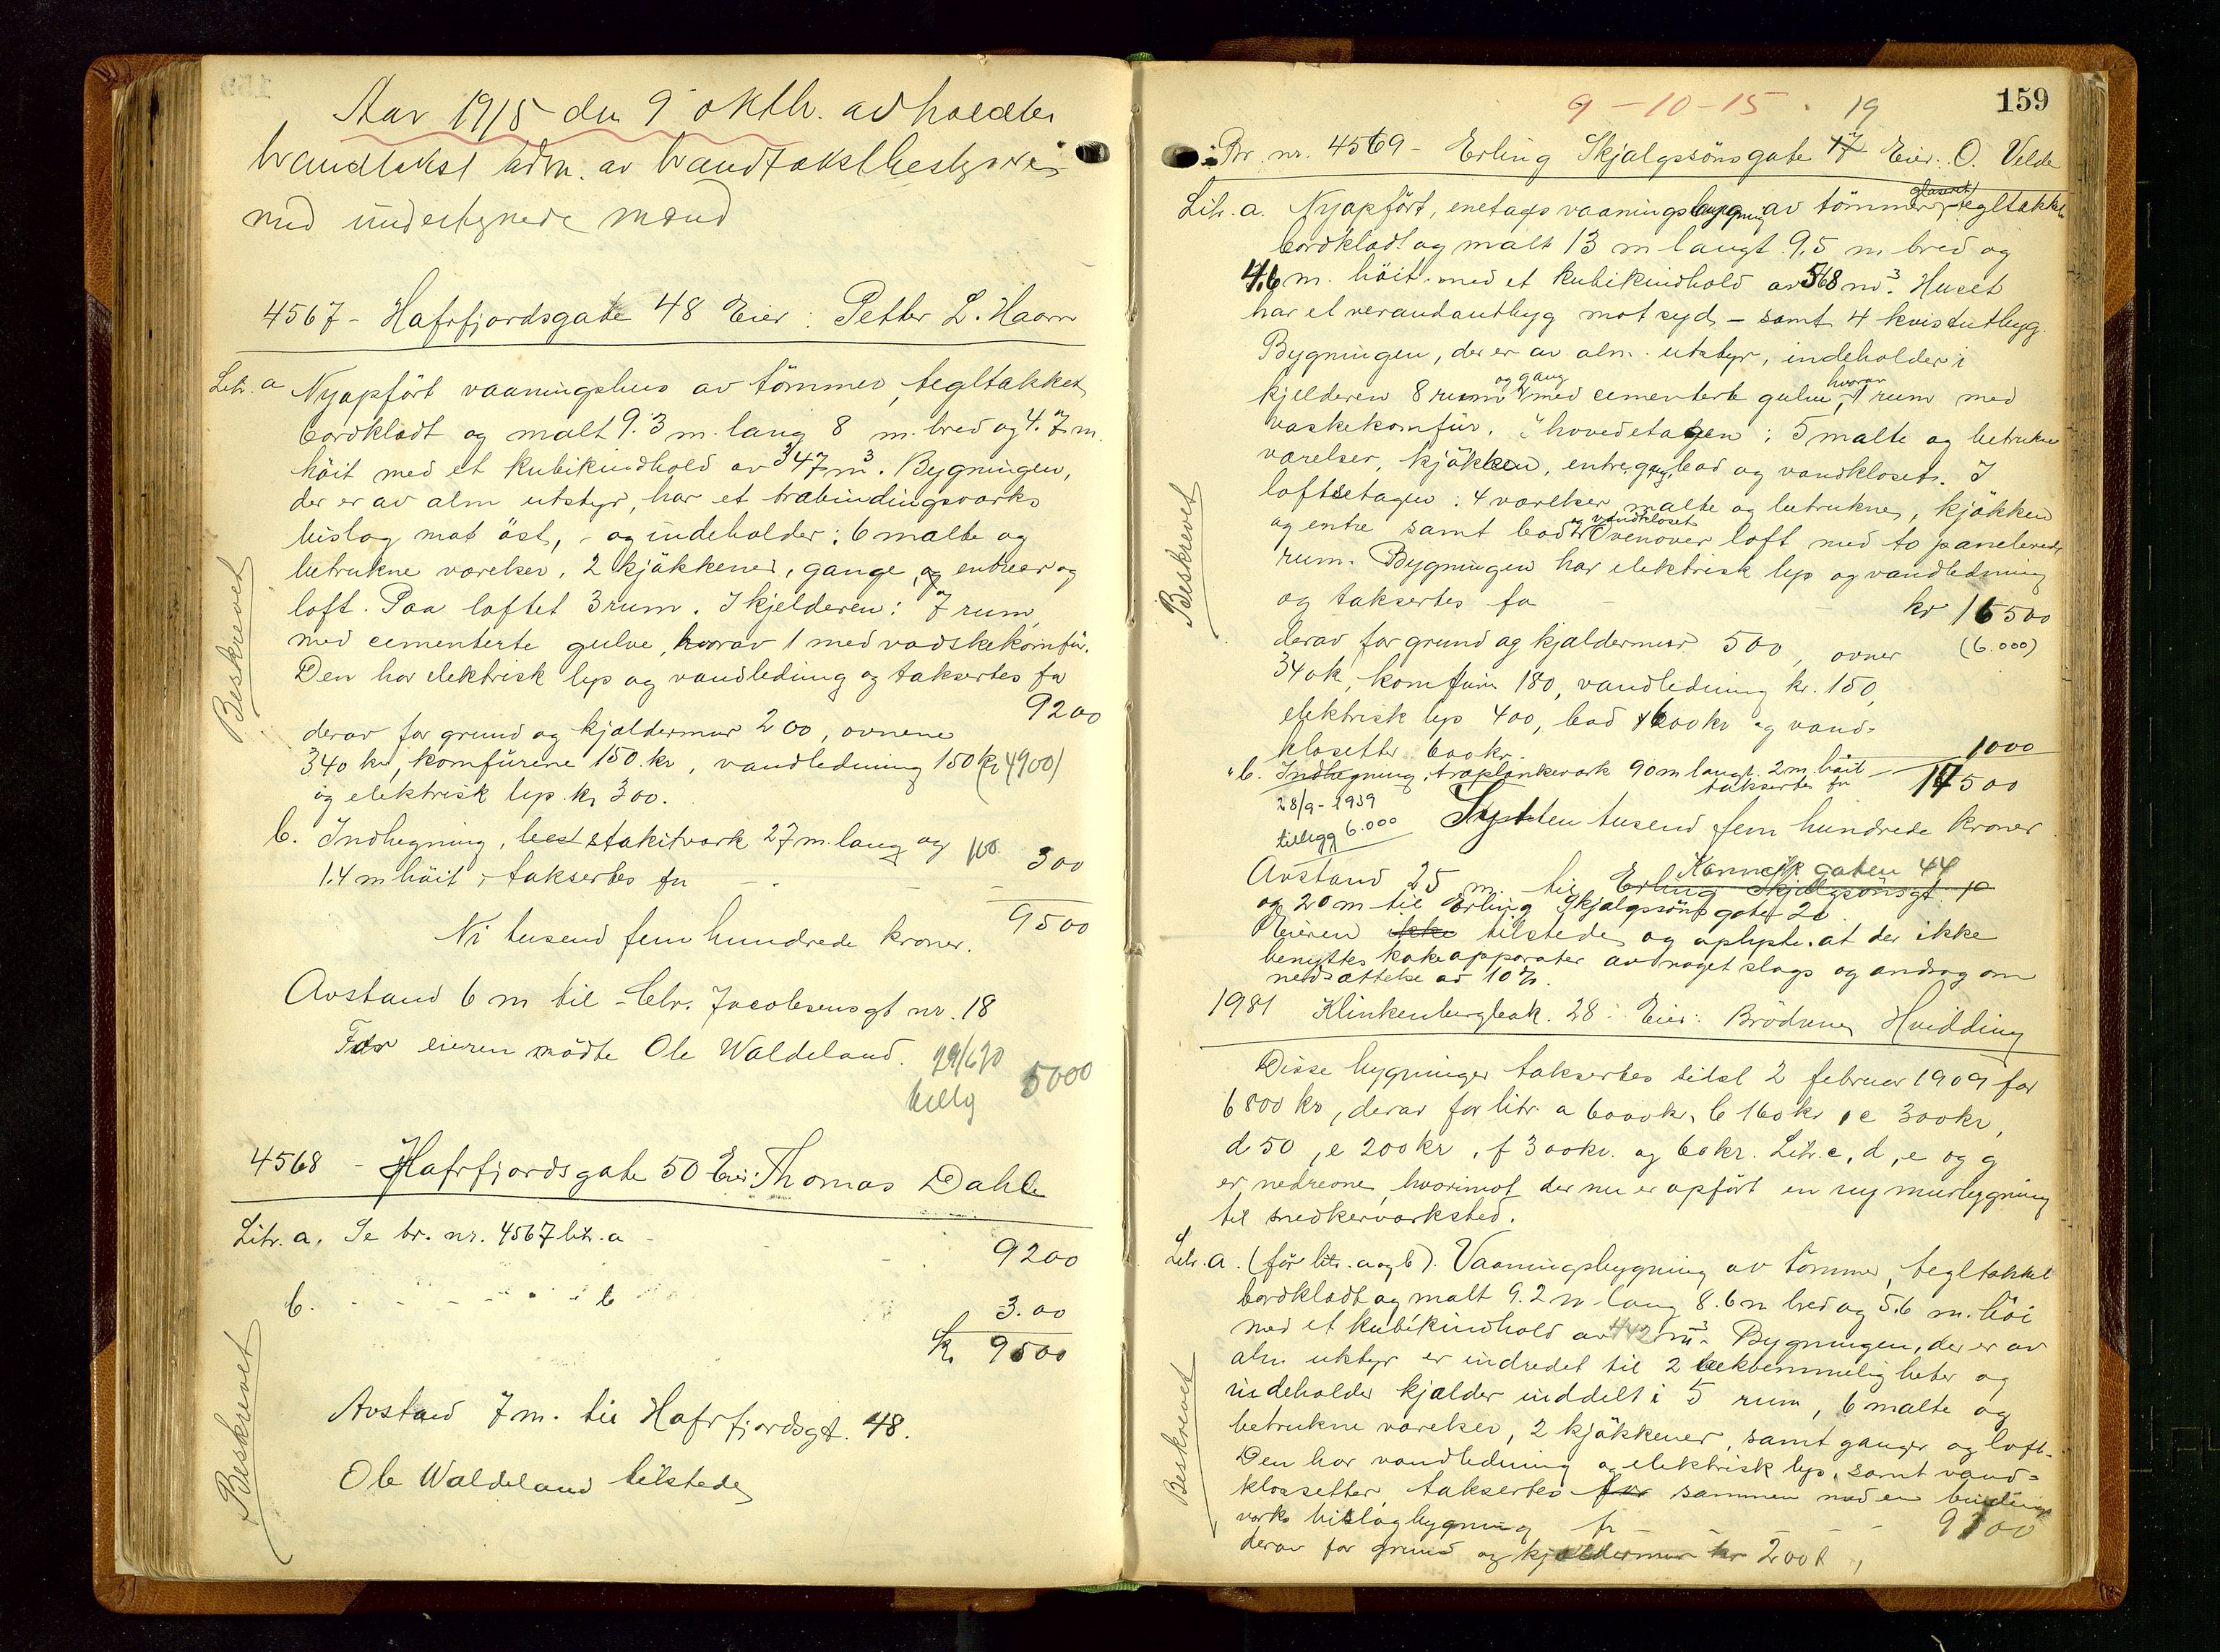 Aar 1915 den 9 oktbr. avholdtes
brandtakst adm. av brandtakstbestyreren
med undertegnede mænd
4567 - Hafrfjordsgate 48 Eier: Petter L. Haarr
Litr. a Nyopfört vaaningshus av tömmer, tegltækket
bordklædt og malt 9.3 m. lang 8 m. bred og 4.7 m.
höit med et kubikindhold av 347 m³. Bygningen,
der er av alm utstyr, har et træbindingsverks
bislag mot öst, - og indeholder: 6 malte og
betrukne værelser, 2 kjökkener, gange, og entreer og
loft. Paa loftet 3 rum. I kjelderen: 7 rum,
med cementerte gulve, hvorav 1 med vadskekomfür.
Den har elektrisk lys og vandledning og takseres for
9200
derav for grund og kjældermur 200, ovnene
340 kr, komfürene 150 kr, vandledning 150 (kr 4900)
og elektrisk lys kr 300.
b. Indhegning, stakitverk 27 m. lang og 100
1.4 m höit, takseres for - - - 300
9500
Ni tusend fem hundrede kroner.
Avstand 6 m til Chr. Jacobsensgt nr. 18
For eieren mödte Ole Waldeland. 29/6 70
tillæg 5000
4568 - Hafrfjordsgate 50 Eier: Thomas Dahle
Litr. a. Se br. nr. 4567 litr. a - - - 9200
b. - - - - - b 3.00
Kr 9500
Avstand 7 m. til Hafrfjordsgt. 48.
Ole Waldeland tilstede
Beskrevet
Beskrevet
9-10-15. 19 159
Br. nr. 4569 - Erling Skjalgssönsgate 17 Eier: O. Velde
Litr. a. Nyopfört, enetages vaaningsbygning av tömmer, glaseret tegltækket
bordklædt og malt 13 m langt 9.5 m bred og
4.6 m. höit med et kubikindhold av 568 m³. Huset
har et verandautbyg mot syd, - samt 4 kvistutbyg.
Bygningen, der er av alm. utstyr, indeholder i
kjelderen 8 rum og gang med cementerte gulve, hvorav 1 rum med
vaskekomfür. I hovedetagen: 5 malte og betrukne
værelser, kjökken, entre, gang, bad og vandkloset. I
loftsetagen: 4 værelser malte og betrukne, kjökken
og entre samt bad og vandkloset. Ovenover loft med to panelerede
rum. Bygningen har elektrisk lys og vandledning
og takseres for - - kr 16500
derav for grund og kjældermur 500, ovner (6.000)
340 kr, komfüre 180, vandledning kr. 150,
elektrisk lys 400, bad 600 kr og vand-
klosetter 600 kr.
" b. Indhegning, træplankeverk 90 m langt. 2 m. höit takseres for 1000
17500
28/9-1939
tillegg 6.000
Sytten tusend fem hundrede kroner
Avstand 25 m. til Erling Skjalgssönsgt. 10 Kannikgaten 44
og 20 m til Erling Skjalgssöns gate 20
Eieren ikke tilstede og oplyste at der ikke
benyttes kokeapparater av noget slags og androg om
nedsættelse av 10%.
1981 Klinkenbergbak. 28: Eier: Brödrene Hvidding
Disse bygninger takseres sidst 2 februar 1909 for
6800 kr, derav for litr. a 6000 kr, b 160 kr, c 300 kr,
d 50, e 200 kr, f 300 kr. og 60 kr. Litr. c, d, e og g
er nedrevne, hvorimot der nu er opfört en ny murbygning
til snedkerverksted.
Litr. a. (för litr. a og b). Vaaningsbygning av tömmer, tegltækket
bordklædt og malt 9.2 m lang 8.6 m bred og 5.6 m. höi
med et kubikindhold av 442 m³. Bygningen, der er av
alm. utstyr er indredet til 2 bekvemmeligheter og
indeholder kjælder inddelt i 5 rum, 6 malte og
betrukne værelser, 2 kjökkener, samt gange og loft.
Den har vandledning og elektrisk lys, samt vand-
klosetter, takseres for sammen med en bindings-
verks bislagbygning for - - - 9700
derav for grund og kjældermur kr 200,
Beskrevet
Beskrevet